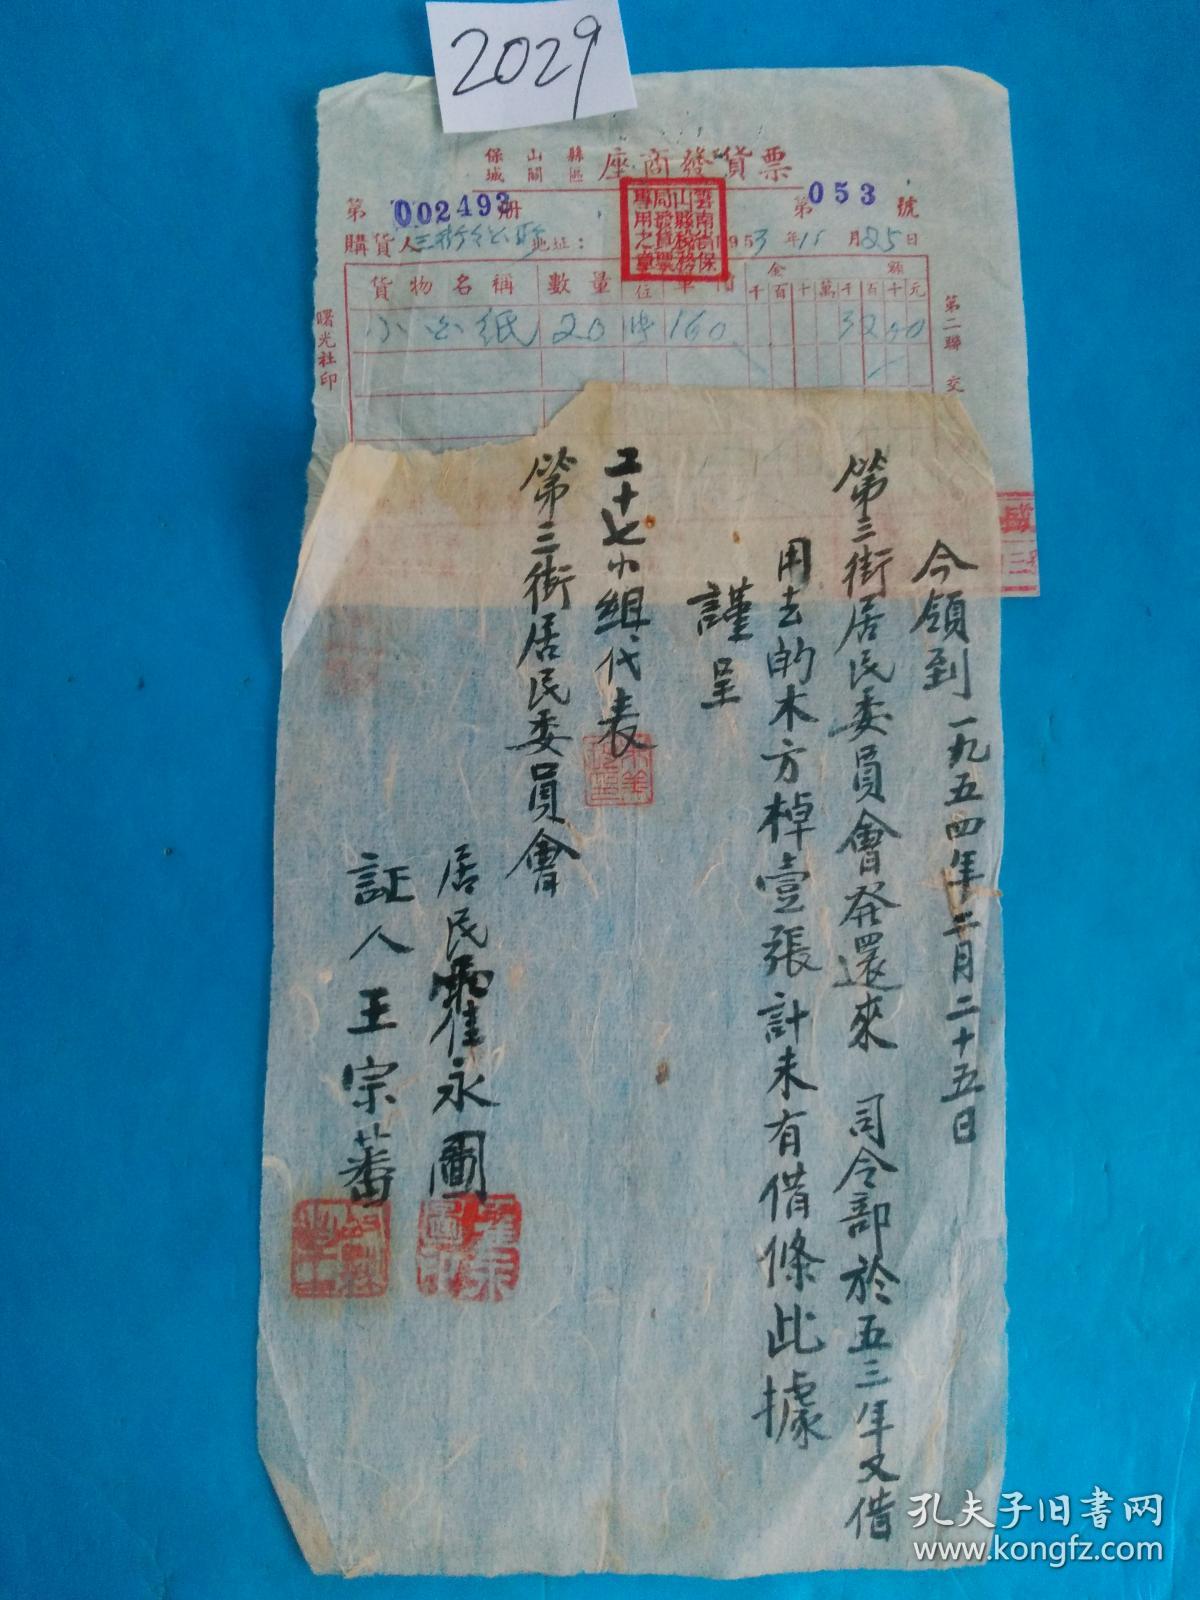 2029
保山縣
城關區
座商發貨票
第002493册
第053號
雲南省保
山縣稅務
局發貨票
專用之章
購貨人
地址：
1953年11月25日
貨物名稱 數量 單位 單價 金額
千百十萬千百十元
小白紙 20 160 3200
第二聯 交
曙光社印
今領到一九五四年二月二十五日
第三街居民委員會發還來 司令部於五三年又借
用去的木方棹壹張計未有借條此據
謹呈
二十七小組代表
第三街居民委員會
居民霍永圖
証人王宗蕃
孔夫子旧书网
www.kongfz.com